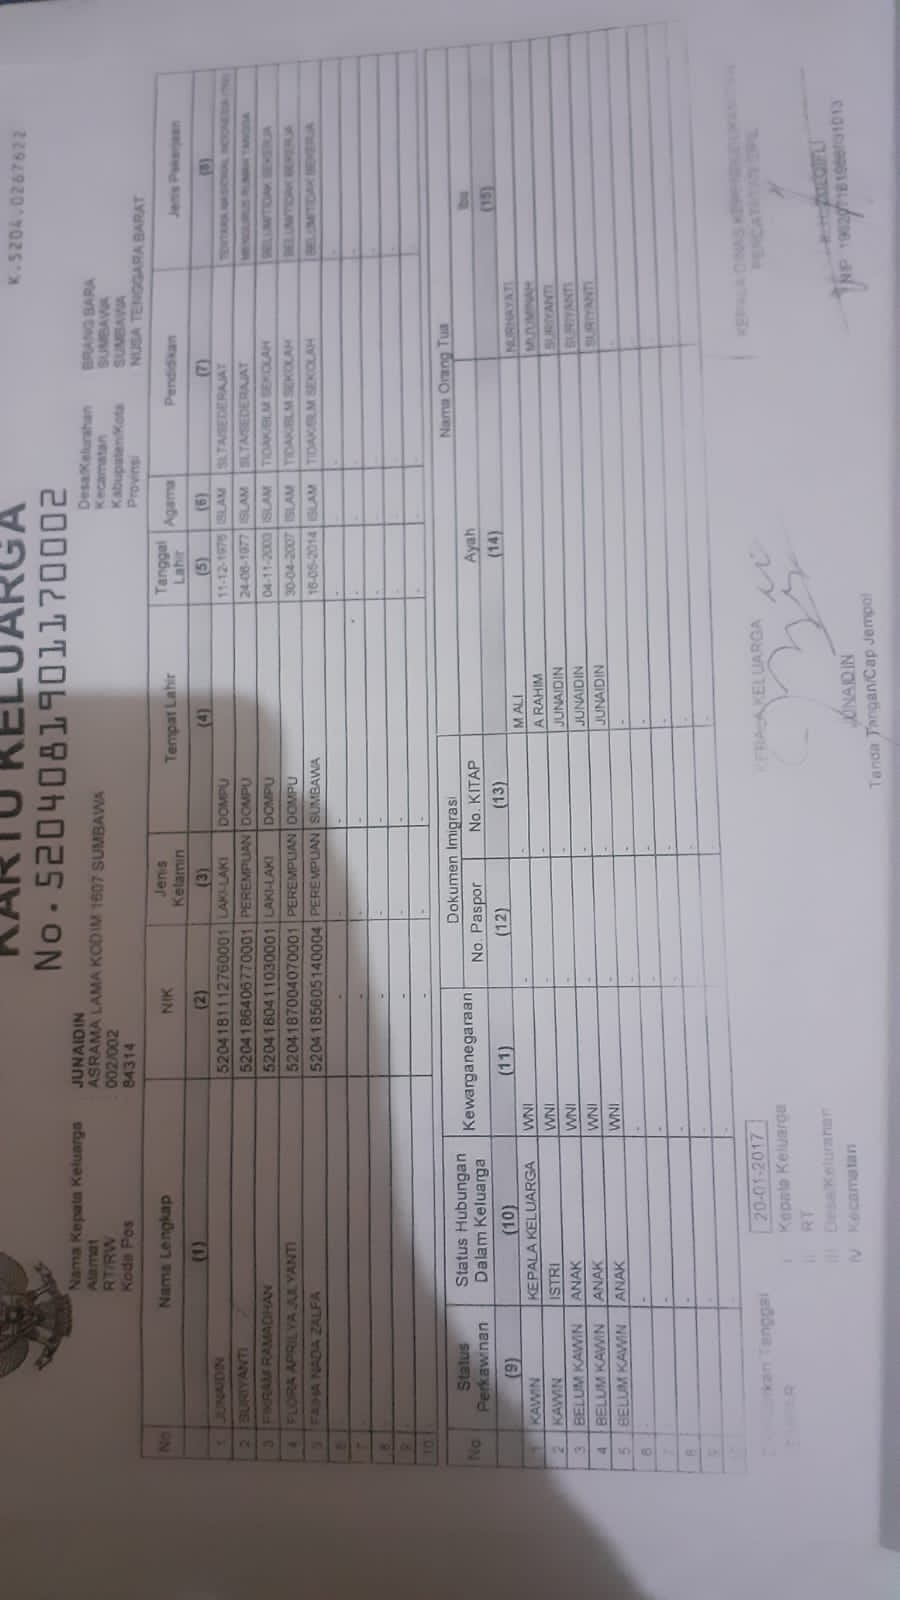 K.5204.0267622
KARTU KELUARGA
No. 5204081901170002
Nama Kepala Keluarga : JUNAIDIN
Alamat : ASRAMA LAMA KODIM 1607 SUMBAWA
RT/RW : 002/002
Kode Pos : 84314
Desa/Kelurahan : BRANG BARA
Kecamatan : SUMBAWA
Kabupaten/Kota : SUMBAWA
Provinsi : NUSA TENGGARA BARAT
No Nama Lengkap NIK Jenis Kelamin Tempat Lahir Tanggal Lahir Agama Pendidikan Jenis Pekerjaan
(1) (2) (3) (4) (5) (6) (7) (8)
1 JUNAIDIN 5204181112760001 LAKI-LAKI DOMPU 11-12-1976 ISLAM SLTA/SEDERAJAT TENTARA NASIONAL INDONESIA (TNI)
2 SURIYANTI 5204186406770001 PEREMPUAN DOMPU 24-06-1977 ISLAM SLTA/SEDERAJAT MENGURUS RUMAH TANGGA
3 FIKRAM RAMADHAN 5204180411030001 LAKI-LAKI DOMPU 04-11-2003 ISLAM TIDAK/BLM SEKOLAH BELUM/TIDAK BEKERJA
4 FLORA APRILYA JULYANTI 5204187004070001 PEREMPUAN DOMPU 30-04-2007 ISLAM TIDAK/BLM SEKOLAH BELUM/TIDAK BEKERJA
5 FAIHA NADA ZALFA 5204185605140004 PEREMPUAN SUMBAWA 16-05-2014 ISLAM TIDAK/BLM SEKOLAH BELUM/TIDAK BEKERJA
6 - - - - - - -
7 - - - - - - -
8 - - - - - - -
9 - - - - - - -
10 - - - - - - -
No Status Perkawinan Status Hubungan Dalam Keluarga Kewarganegaraan Dokumen Imigrasi Nama Orang Tua
No. Paspor No. KITAP Ayah Ibu
(9) (10) (11) (12) (13) (14) (15)
1 KAWIN KEPALA KELUARGA WNI - - M ALI NURHAYATI
2 KAWIN ISTRI WNI - - A RAHIM MU'UMINAH
3 BELUM KAWIN ANAK WNI - - JUNAIDIN SURIYANTI
4 BELUM KAWIN ANAK WNI - - JUNAIDIN SURIYANTI
5 BELUM KAWIN ANAK WNI - - JUNAIDIN SURIYANTI
6 - - - - - - -
7 - - - - - - -
8 - - - - - - -
9 - - - - - - -
Tanggal 20-01-2017
I. Kepala Keluarga
II. RT
III. Desa/Kelurahan
IV. Kecamatan
KEPALA KELUARGA
JUNAIDIN
Tanda Tangan/Cap Jempol
KEPALA DINAS KEPENDUDUKAN DAN
PENCATATAN SIPIL
ZULQIFLI
NIP.